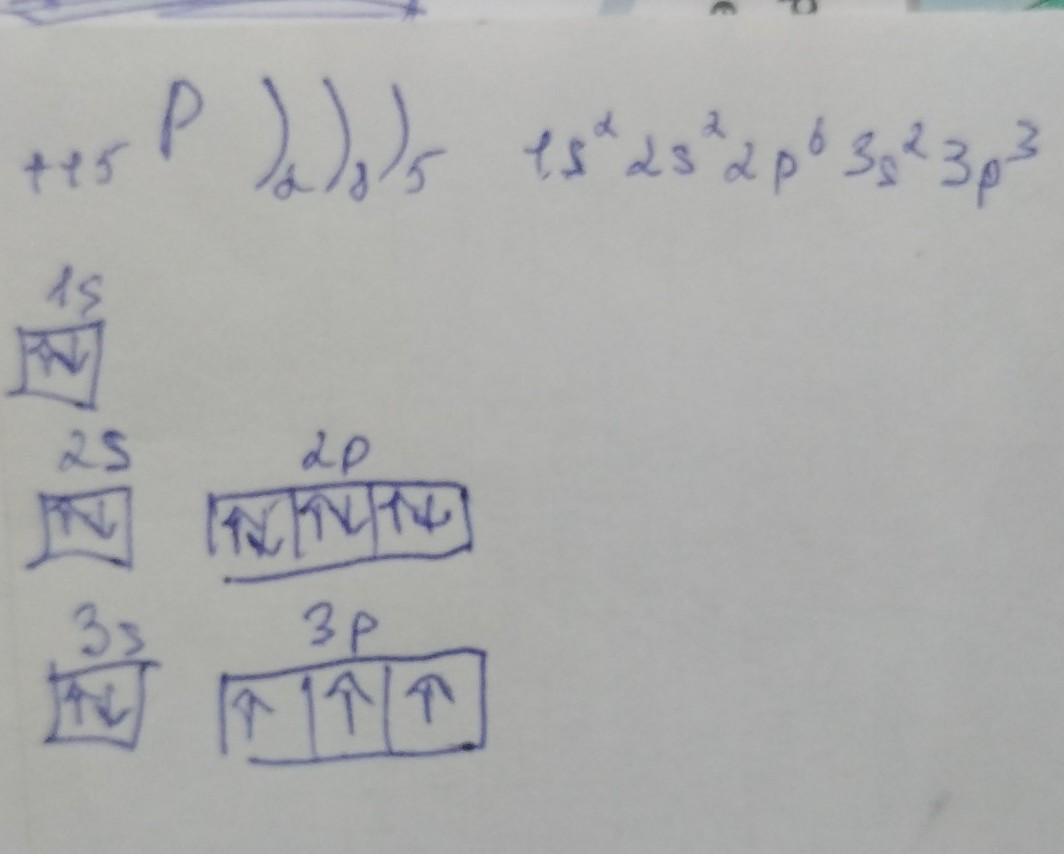 +15 P )2 )8 )5 1s² 2s² 2p⁶ 3s² 3p³
1s
↑↓
2s 2p
↑↓ ↑↓ ↑↓ ↑↓
3s 3p
↑↓ ↑ ↑ ↑